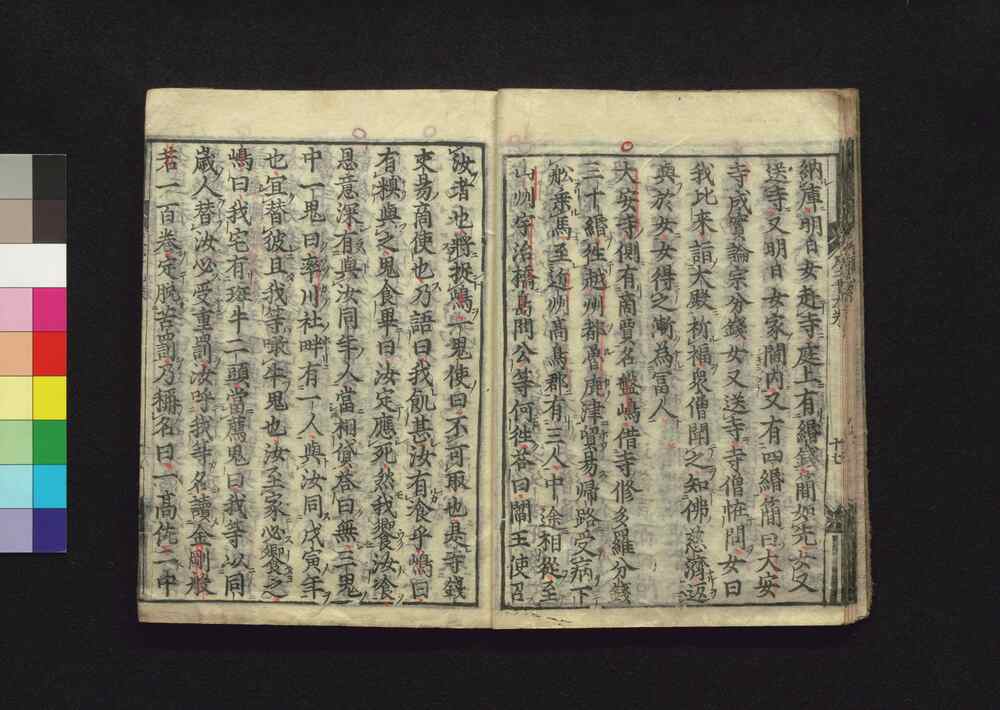 納庫明日女走寺庭上有緡錢簡如先女又
送寺又明日女家閫内又有四緡簡曰大安
寺成實論宗分錢女又送寺寺僧恠問女曰
我比来詣大殿祈福衆僧聞之知佛慈濟返
與於女女得之漸為冨人
大安寺側有商賈名盤嶋借寺修多羅分錢
三十緡徃越州都魯鹿津貿易帰路受病下
舩乗馬至近州髙嶌郡有三人中途相從至
山州宇治橋島問公等何徃荅曰閻王使召
汝者也將捉嶋一鬼使曰不可取也是寺錢
来昜商使也乃語曰我飢甚汝有食乎嶋曰
有糗與之鬼食畢曰汝定應死然我饗汝飡
恩意深有與汝同年人當相貸荅曰無三鬼
中一鬼曰率川社畔有一人與汝同戊寅年
也冝替彼且我等噉牛鬼也汝至家必饗之
嶋曰我宅有斑牛二頭當薦鬼曰我等以同
歳人替汝必受重罰汝呼我等名讀金剛般
若一百巻定脱苦罰乃稱名曰一髙佐二中
十七